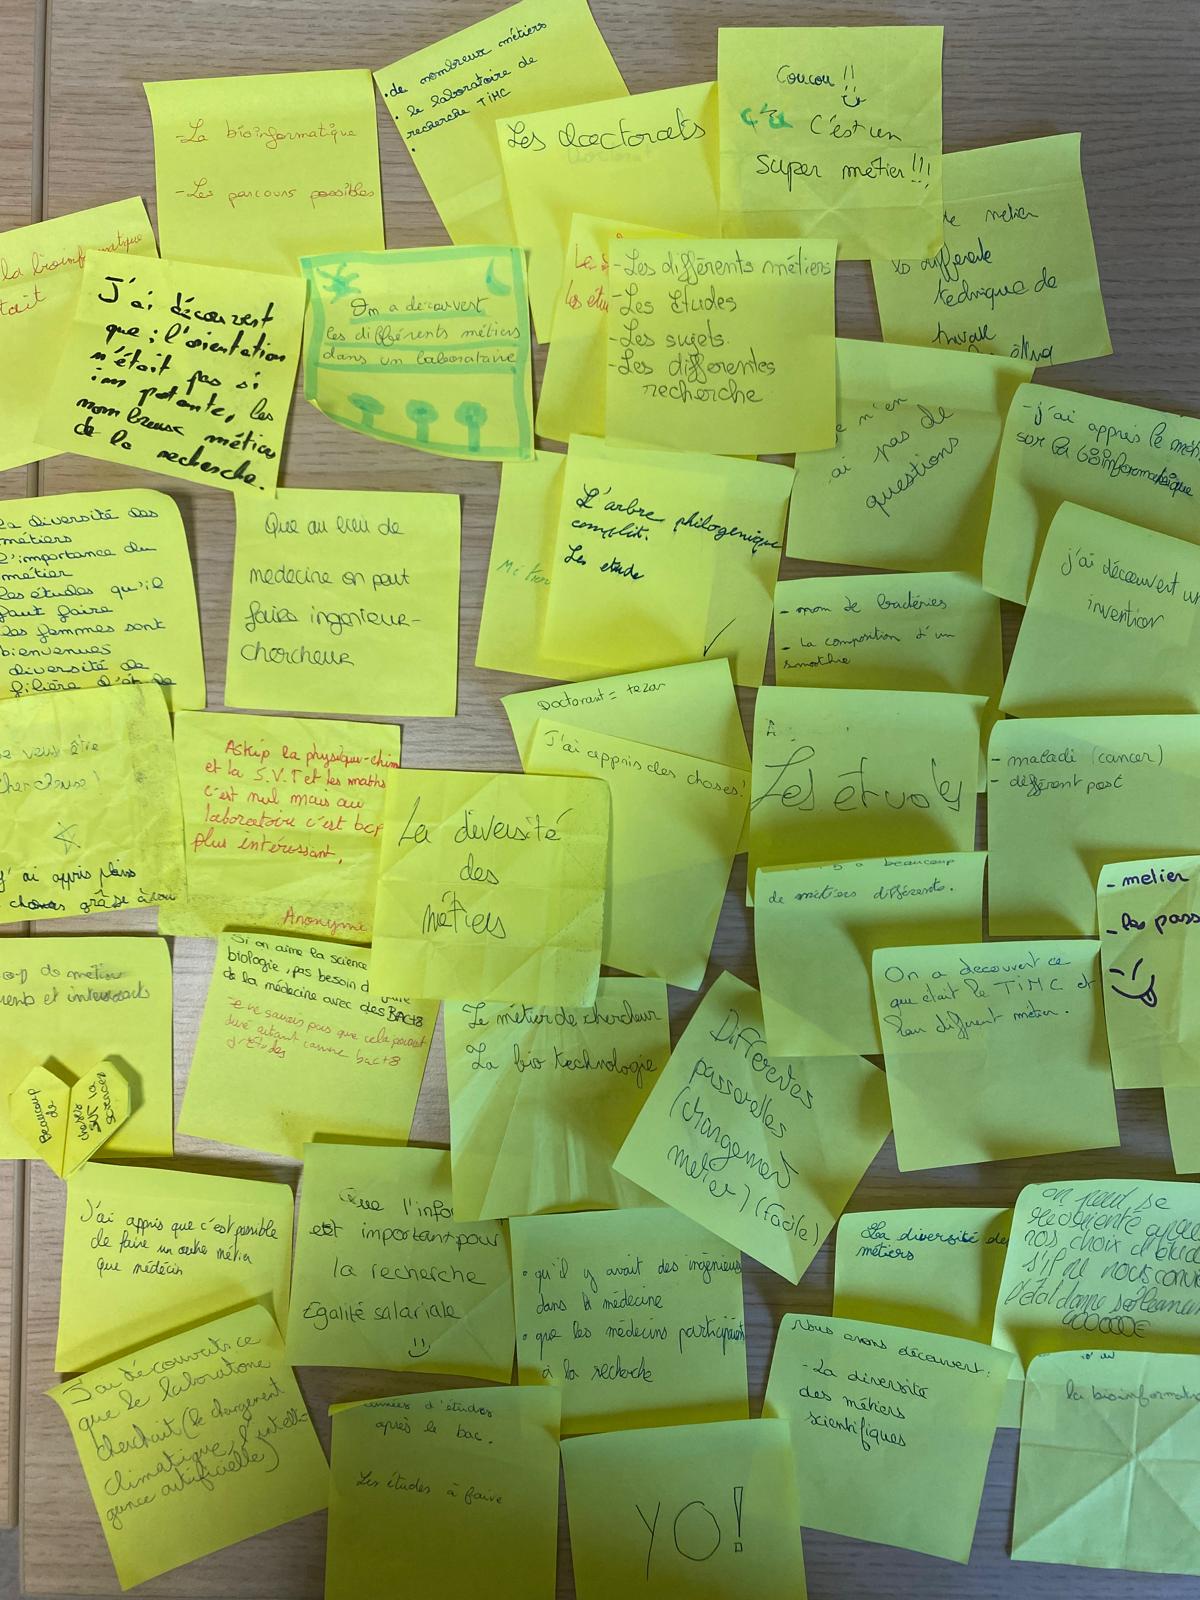 .de nombreux métiers
. le laboratoire de
recherche TiMC
-La bioinformatique
-Les parcours possibles
Les doctorats
Coucou !!
C'est un
super métier !!!
la bioinformatique
tait
J'ai découvert
que ; l'orientation
n'était pas si
im potante, les
nombreux métiers
de la recherche.
On a découvert
les différents métiers
dans un laborataire
-Les différents métiers
-Les Etudes
-Les sujets.
-Les differentes
recherche
les étu
metier
differente
technique de
travail
e n'en
ai pas de
questions
-j'ai appris le mét
sur la bioinformatique
j'ai découvert un
invention
la diversité des
métiers
l'importance du
métier
les études qu'il
faut faire
les femmes sont
bienvenues
diversité de
filière
Que au lieu de
medecine on peut
faire ingenieur-
chercheur
L'arbre philogenique
complit.
Les etude
- nom de bactéries
- La composition d'un
smoothie
e veux être
chercheuse !
j'ai appris pleins
choses grâce à vou
Askip la physique-chim
et la S.V.T et les maths
c'est nul mais au
laboratoire c'est bcp
plus intéressant.
Anonyme
Doctorant = tezar
J'ai appris des choses!
La diversité
des
métiers
Les études
- maladi (cancer)
- différent post
beaucoup
de métiers différents.
- metier
- les pass
On a decouvert ce
que était le TiMC et
leur différent métier.
op de métier
rents et interessants
Si on aime la science
biologie, pas besoin d
de la médecine avec des BAC+8
Je ne savais pas que cela pouvait
duré autant comme bac+8
d'études
Le métier de chercheur
La bio technologie
Différentes
passerelles
(changement
metier) (facile)
Beaucoup
de
choses
sur la
sciences
J'ai appris que c'est possible
de faire un autre métier
que médecin
Que l'info
est important pour
la recherche
Egalité salariale
. qu'il y avait des ingénieurs
dans la médecine
. que les médecins participaient
à la recherche
La diversité de
métiers
on peut se
réorienté après
nos choix d'étude
s'il ne nous convi
l'état donne seulement
J'ai découverts ce
que le laboratoire
cherchait (le changement
climatique, l'intelli-
gence artificielle)
années d'études
après le bac.
Les études à faire
YO!
Nous avons découvert:
- La diversité
des métiers
scientifiques
la bioinformati